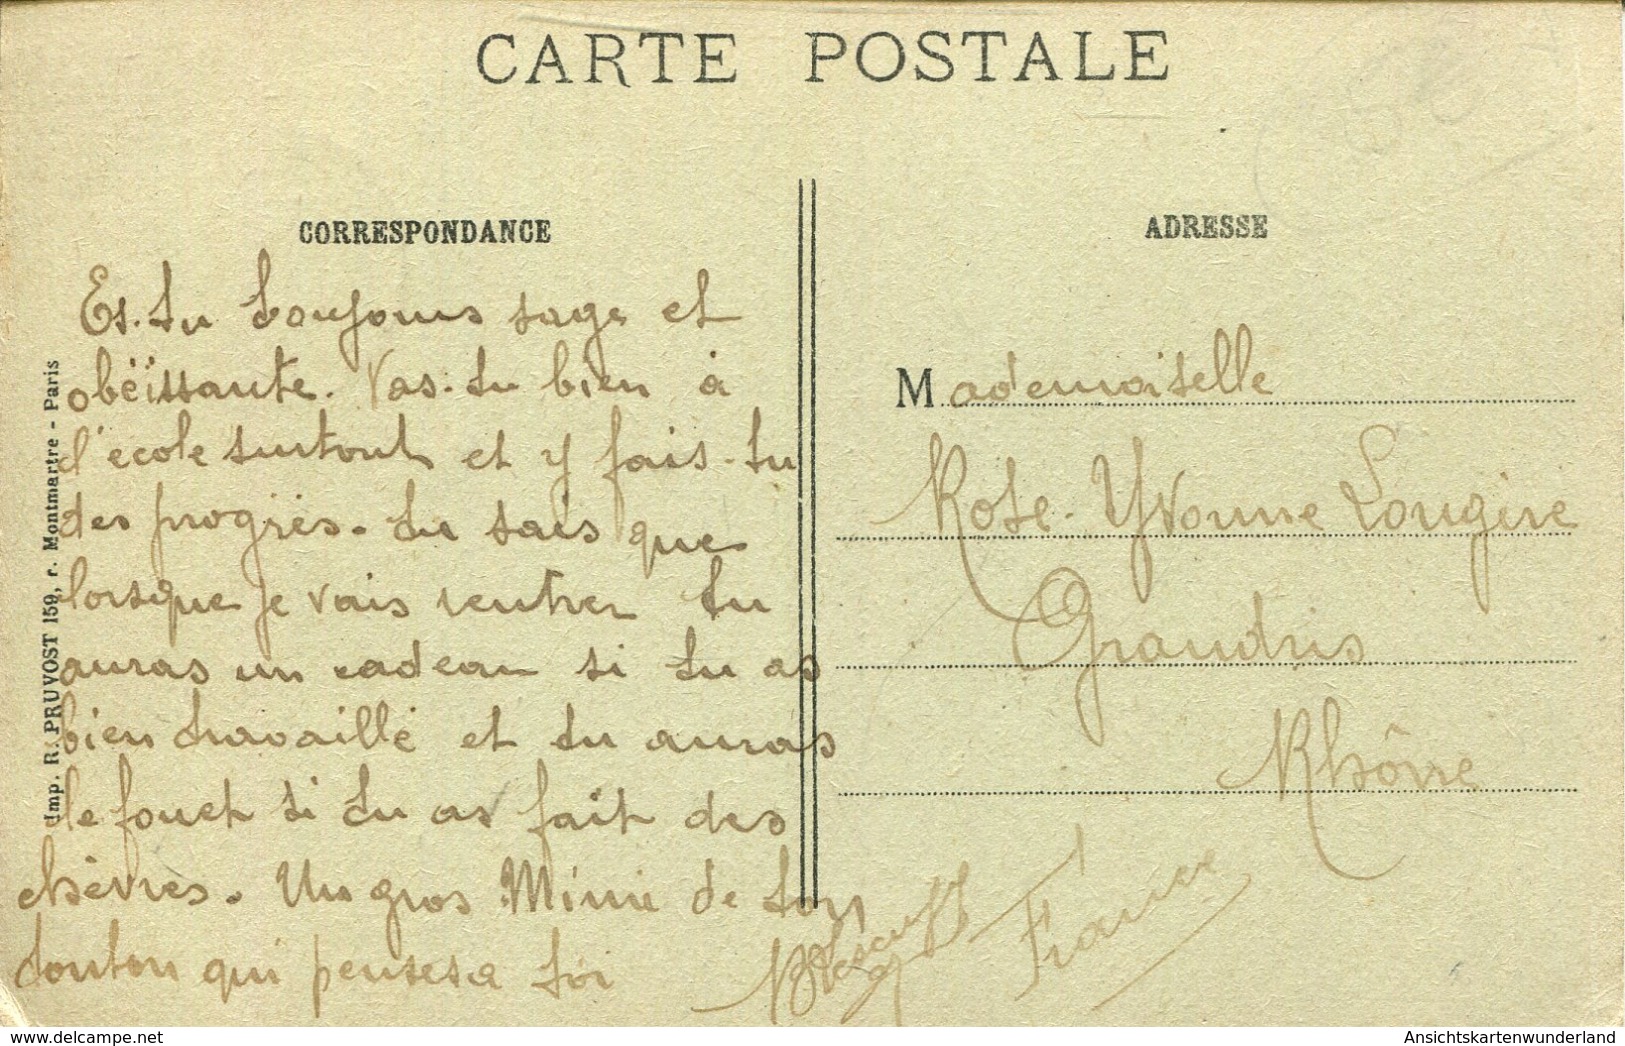 CARTE POSTALE
CORRESPONDANCE
Es-tu toujours sage et
obéïssante. Vas-tu bien à
l'école surtout et y fais-tu
des progrès. tu sais que
lorsque je vais rentrer tu
auras un cadeau si tu as
bien travaillé et tu auras
le fouet si tu as fait des
chèvres. Un gros Mimi de ton
tonton qui penses a toi
ADRESSE
Mademoiselle
Rose-Yvonne Longire
Grandris
Rhône
France
Imp. R. PRUVOST 159, r. Montmartre - Paris
AnsichtskartenWunderland